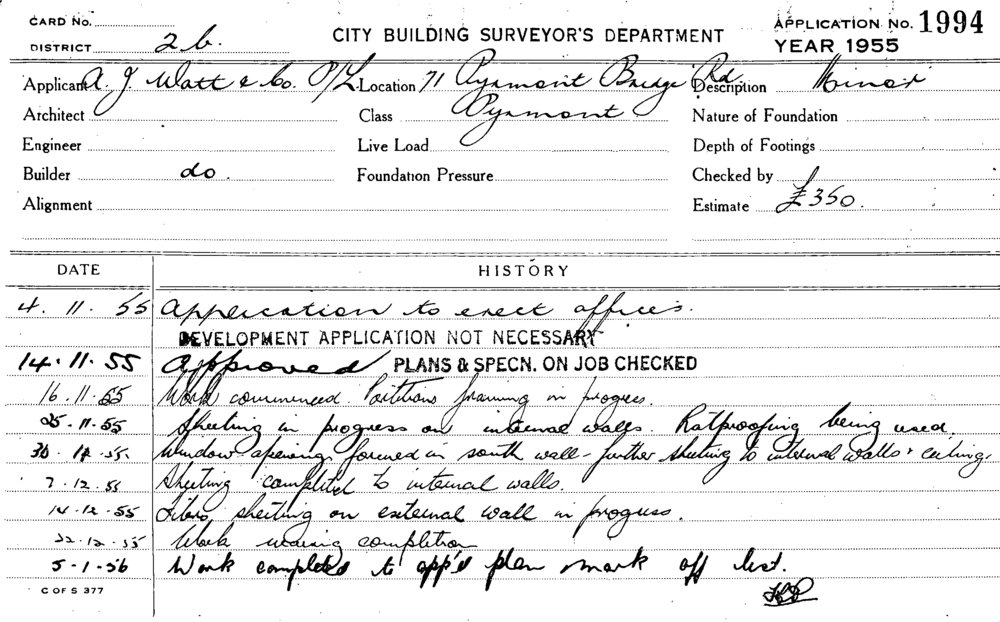 CARD No.
DISTRICT 2b.
CITY BUILDING SURVEYOR'S DEPARTMENT
APPLICATION No. 1994
YEAR 1955
Applicant A. J. Watt & Co. P/L. Location 71 Pyrmont Bridge Rd Description Minor
Architect Class Pyrmont Nature of Foundation
Engineer Live Load Depth of Footings
Builder do. Foundation Pressure Checked by
Alignment Estimate £350.
DATE HISTORY
4. 11. 55 Application to erect offices.
DEVELOPMENT APPLICATION NOT NECESSARY
14.11.55 Approved PLANS & SPECN. ON JOB CHECKED
16.11.55 Work commenced. Partitions framing in progress.
25.11.55 Sheeting in progress on internal walls. Ratproofing being used.
30.11.55 Window opening formed in south wall - further sheeting to internal walls & ceiling.
7.12.55 Sheeting completed to internal walls.
14.12.55 Fibro sheeting on external wall in progress.
22.12.55 Work nearing completion
5-1-56 Work completed to app'd plan mark off list.
C OF S 377